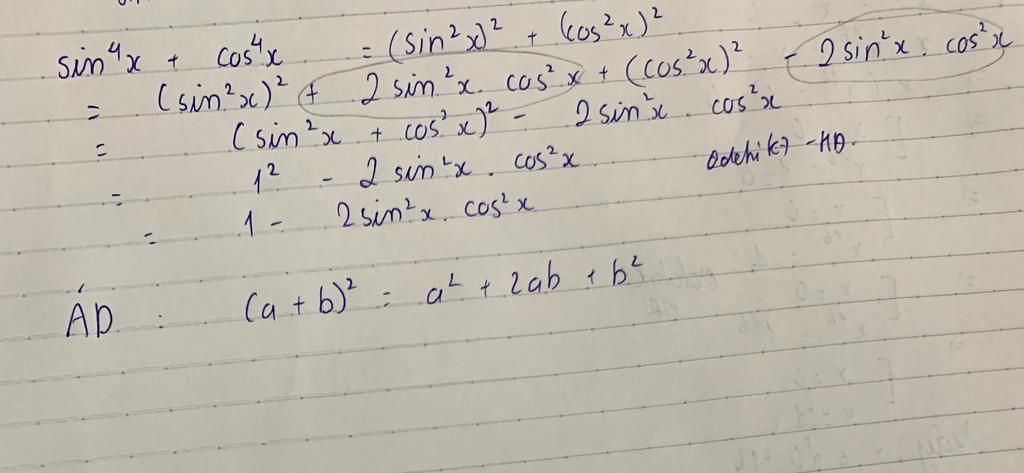 sin⁴x + cos⁴x = (sin²x)² + (cos²x)²
= (sin²x)² + 2 sin²x. cos²x + (cos²x)² - 2 sin²x. cos²x
= (sin²x + cos²x)² - 2 sin²x. cos²x
= 1² - 2 sin²x. cos²x
= 1 - 2 sin²x. cos²x
ÁD : (a + b)² = a² + 2ab + b²